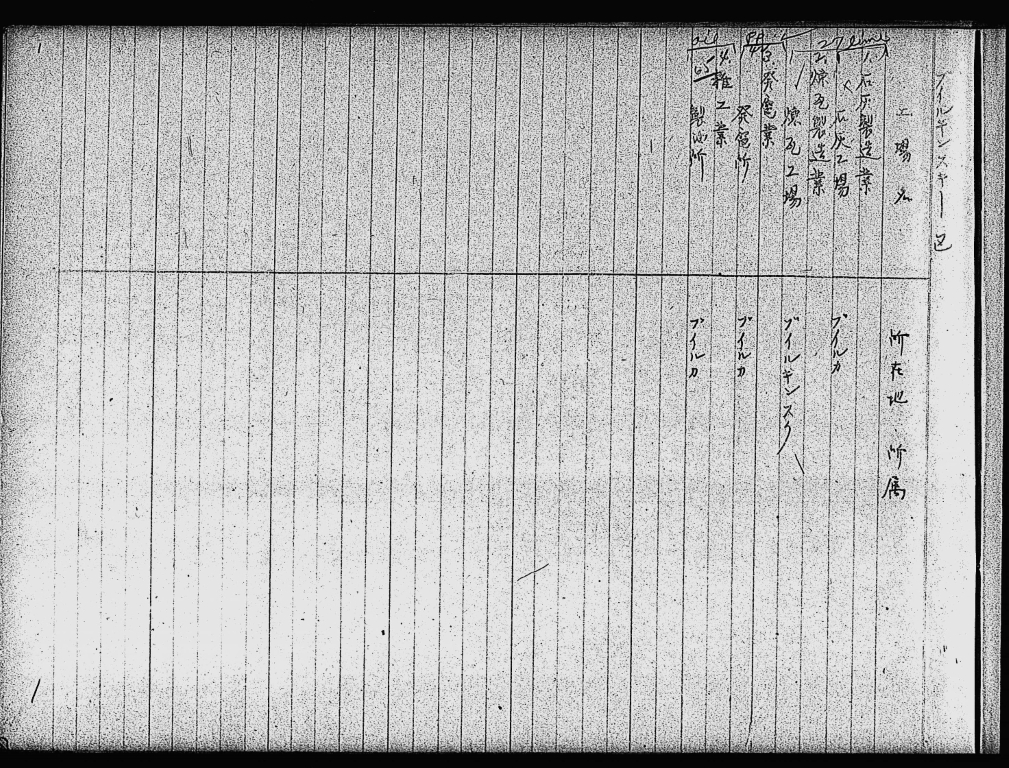 ブイルキンスキー区
工場名 所在地 所属
1. 石灰製造業
石灰工場 ブイルカ
2. 煉瓦製造業
煉瓦工場 ブイルキンスク
3. 発電業
発電所 ブイルカ
4. 雑工業
製油所 ブイルカ